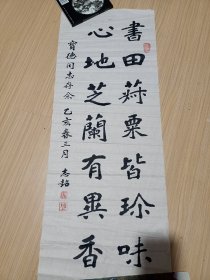 書田菽粟皆珍味
心地芝蘭有異香
寶德同志存念 乙亥春三月 志鈷